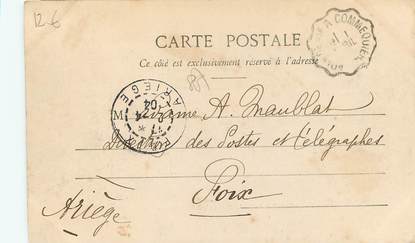 12-6
CARTE POSTALE
Ce côté est exclusivement réservé à l'adresse
A COMMEQUIERS
ARIEGE
04
M A. Maublat
Direction des Postes et Télégraphes
Foix
Ariège